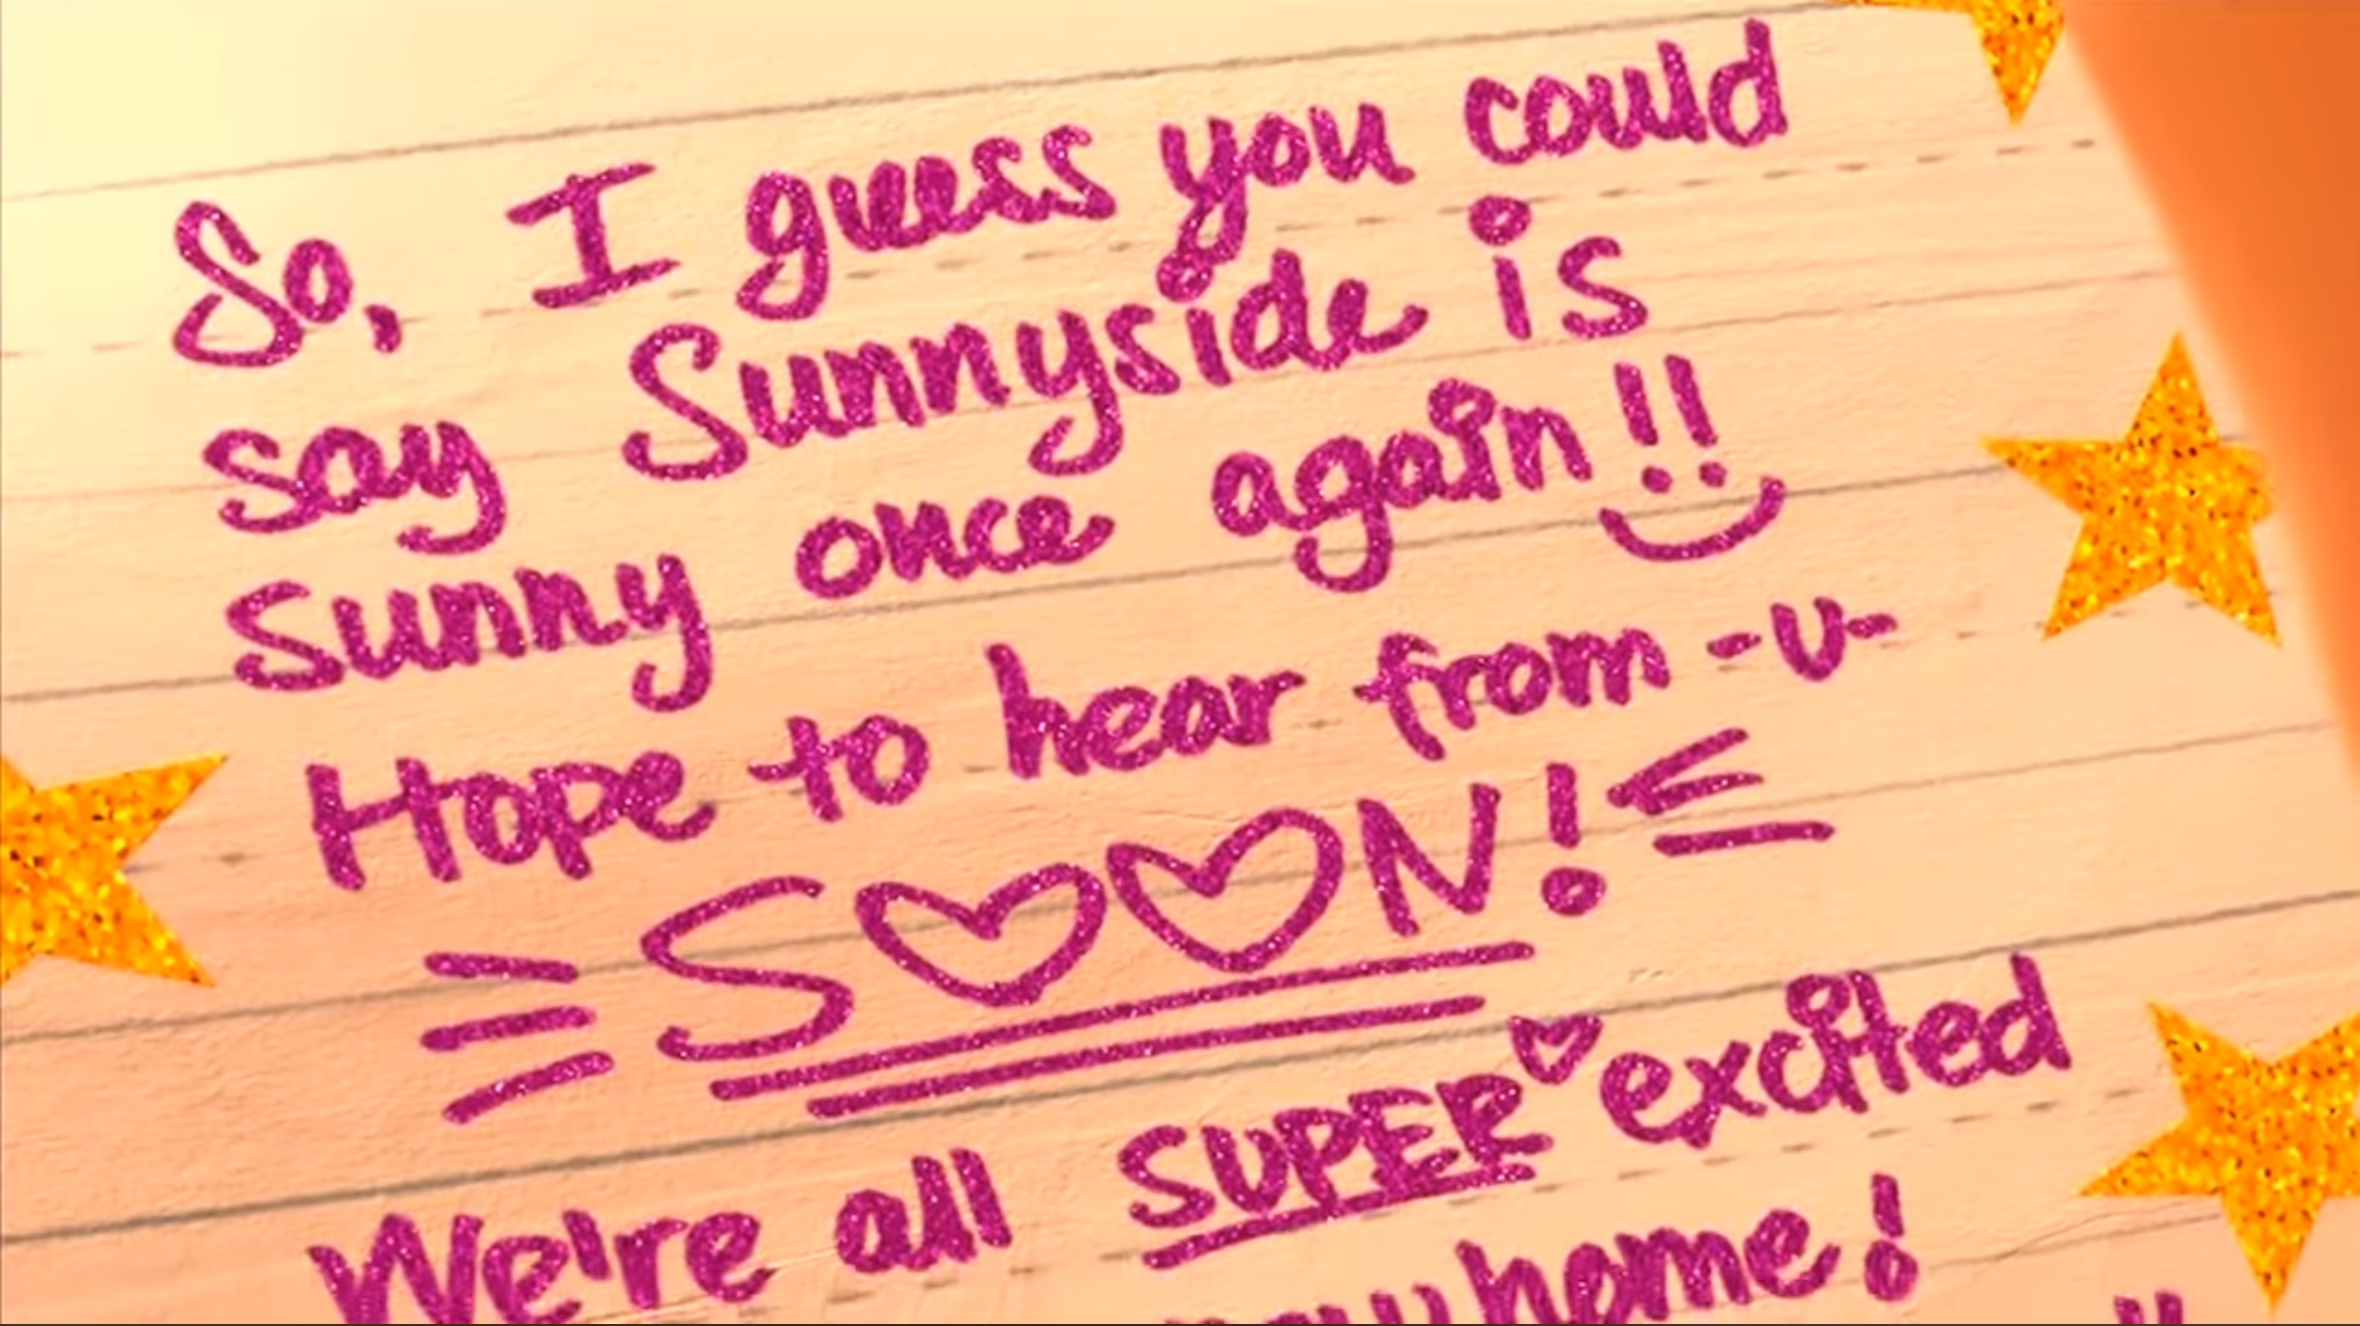 So, I guess you could
say Sunnyside is
Sunny once again!!
Hope to hear from -U-
SOON!
We're all SUPER excited
home!